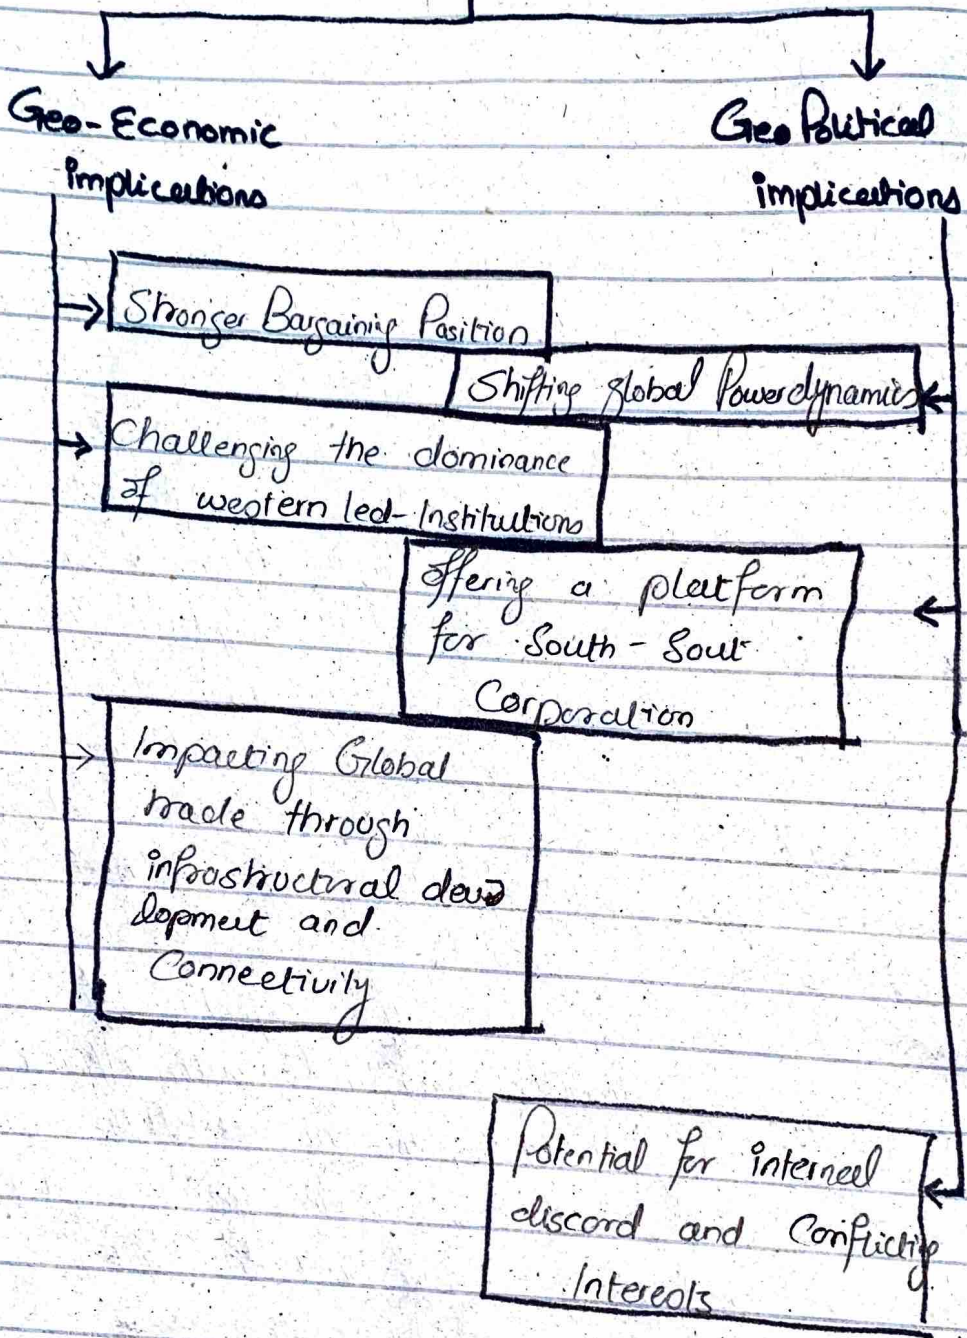 Geo-Economic
implications
Geo Political
implications
Stronger Bargaining Position
Shifting global Power dynamics
Challenging the dominance
of western led-Institutions
offering a platform
for South-Sout
Corporation
Impacting Global
trade through
infrastructural deve
lopment and
Connectivity
Potential for internal
discord and Conflicting
Interests